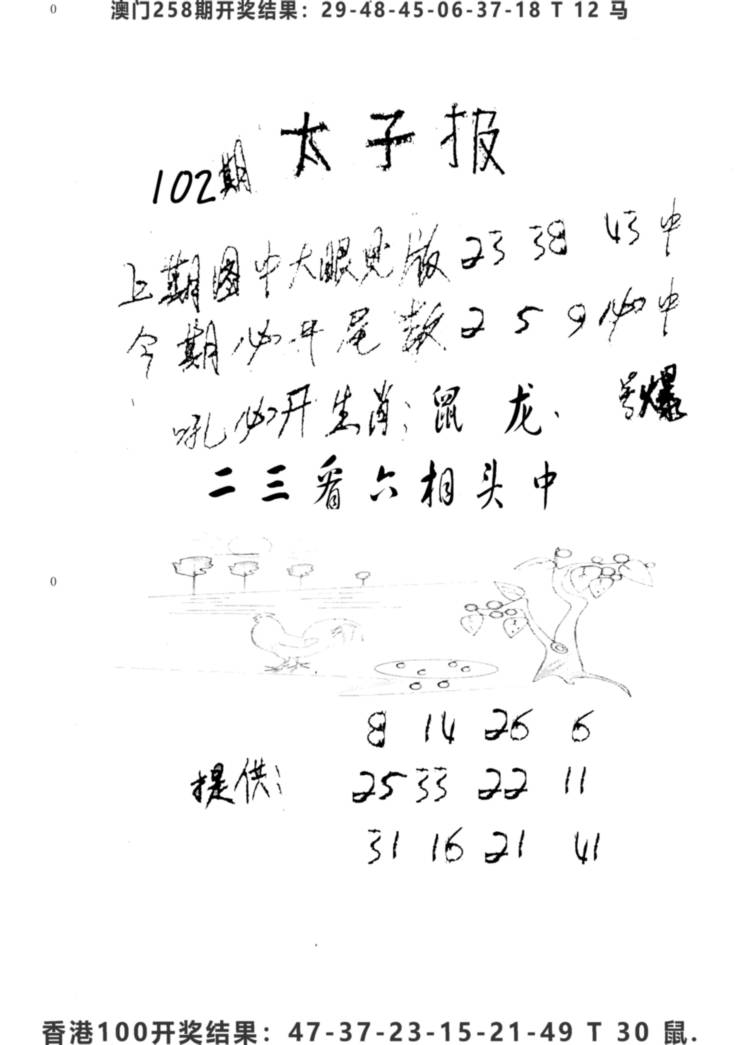 0
澳门258期开奖结果：29-48-45-06-37-18 T 12 马
太子报
102期
上期图中大眼见版 23 38 43 中
今期必开尾数 2 5 9 必中
吼必开生肖：鼠 龙.爆
二三看六相头中
0
8 14 26 6
提供：25 33 22 11
31 16 21 41
香港100开奖结果：47-37-23-15-21-49 T 30 鼠.